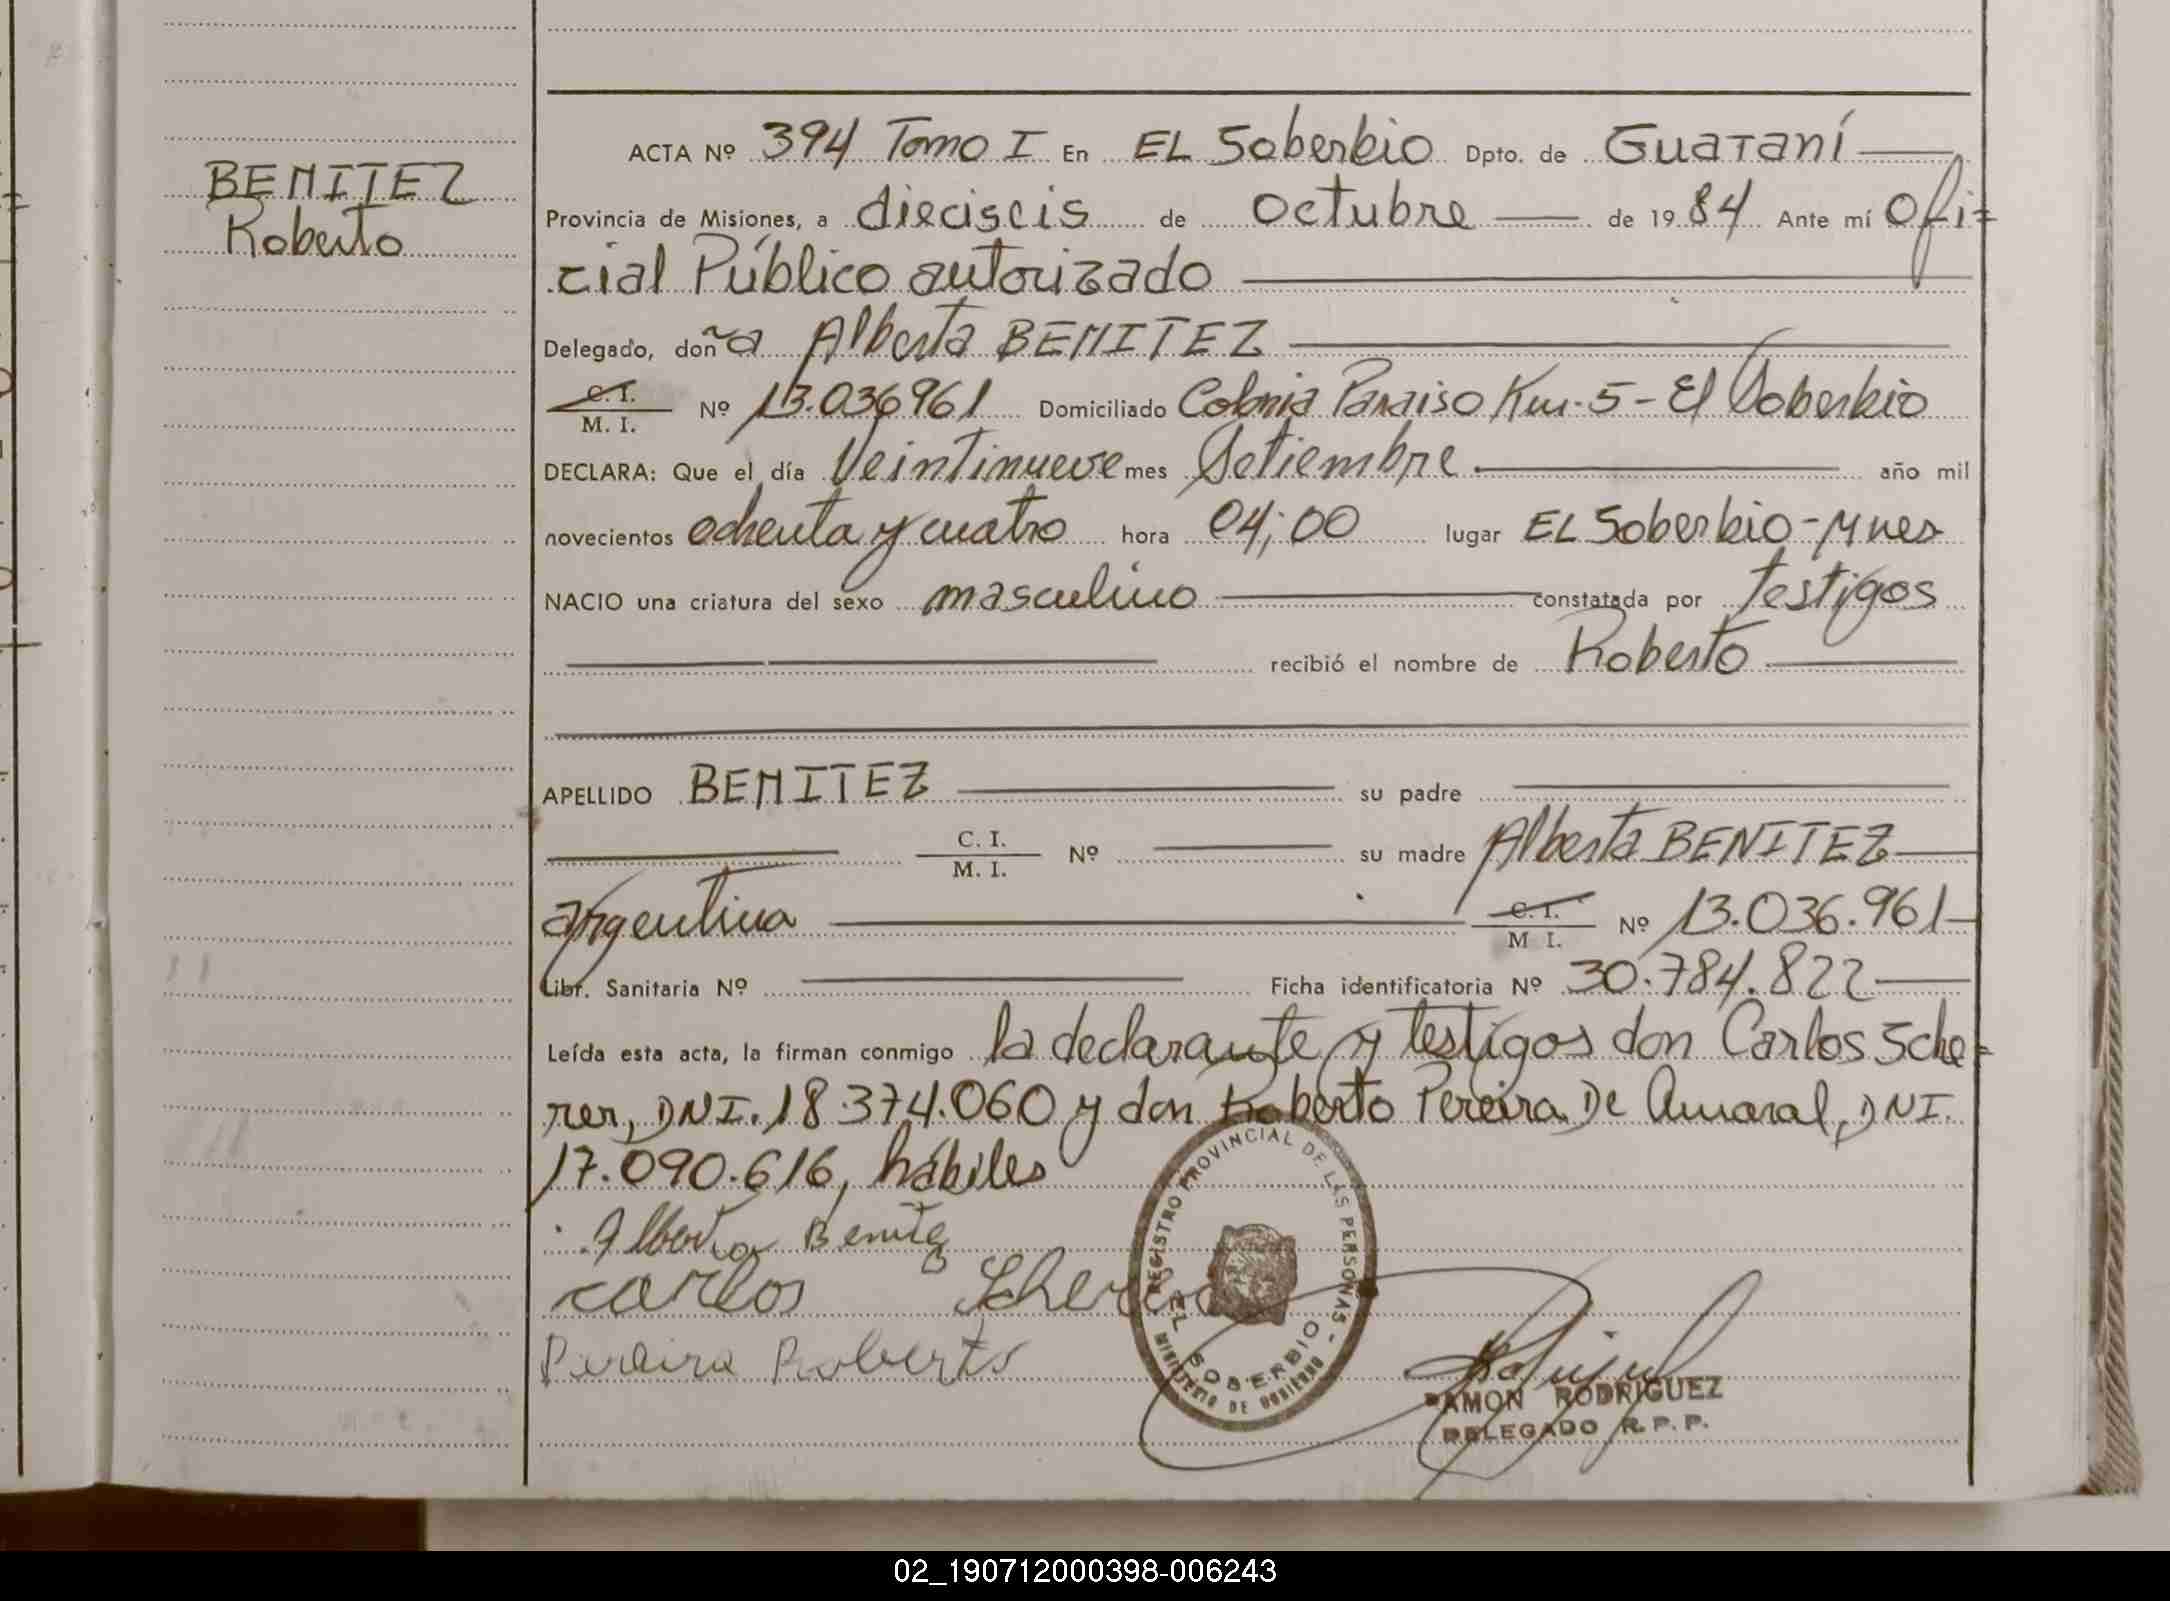 BENITEZ
Roberto
ACTA Nº 394 Tomo I En EL Soberbio Dpto. de Guaraní
Provincia de Misiones, a dieciseis de Octubre de 1984 Ante mí Ofi=
cial Público autorizado
Delegado, doña Alberta BENITEZ
C. I. / M. I. Nº 13.036961 Domiciliado Colonia Paraiso Km. 5 - El Soberbio
DECLARA: Que el día Veintinueve mes Setiembre año mil
novecientos ochenta y cuatro hora 04;00 lugar EL Soberbio - Mnes
NACIO una criatura del sexo masculino constatada por testigos
recibió el nombre de Roberto
APELLIDO BENITEZ su padre
C. I. / M. I. Nº su madre Alberta BENITEZ
argentina C. I. / M I. Nº 13.036.961
Libr. Sanitaria Nº Ficha identificatoria Nº 30.784.822
Leída esta acta, la firman conmigo la declarante y testigos don Carlos Sche=
rer, DNI. 18.374.060 y don Roberto Pereira De Amaral, DNI.
17.090.616, hábiles
Alberta Benitez
carlos Scherer
Pereira Roberto
REGISTRO PROVINCIAL DE LAS PERSONAS -
EL SOBERBIO
MINISTERIO DE GOBIERNO
RAMON RODRIGUEZ
DELEGADO R. P. P.
02_190712000398-006243